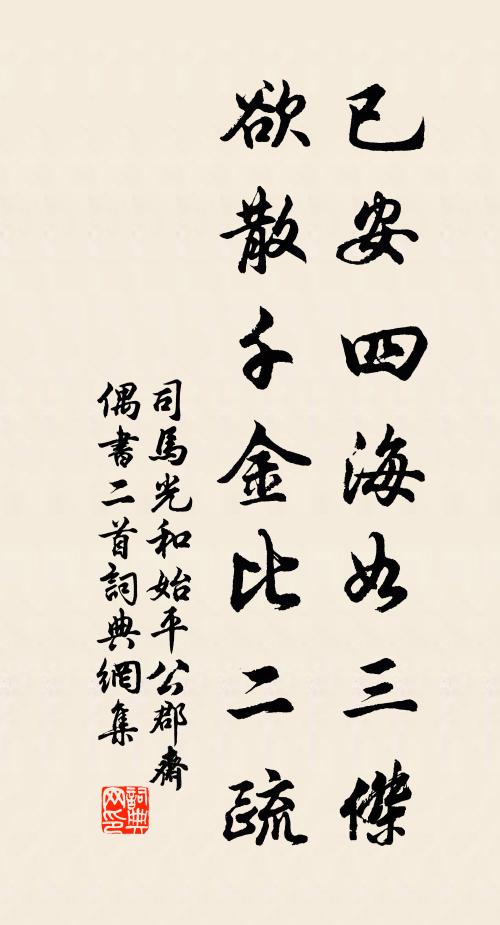 已安四海如三傑
欲散千金比二疏
司馬光和始平公郡齋
偶書二首詞典網集
詞典
网印